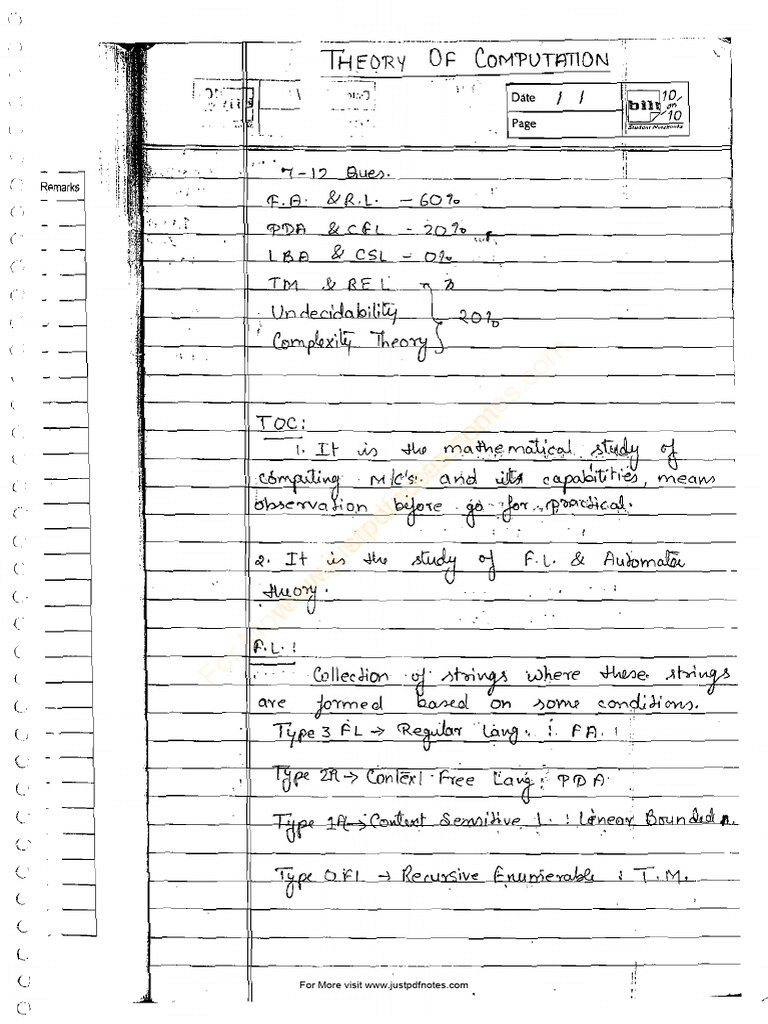 THEORY OF COMPUTATION
Date / /
Page
bilt 10 on 10
Student Notebooks
Remarks
7-12 Ques.
F.A. & R.L. - 60%
PDA & CFL - 20%
LBA & CSL - 0%
TM & REL
Undecidability 20%
Complexity Theory
TOC:
1. It is the mathematical study of
computing M/C's. and its capabilities, means
observation before go for practical.
2. It is the study of F.L. & Automata
theory.
F.L. :
Collection of strings where these strings
are formed based on some conditions.
Type 3 FL → Regular Lang. : FA.
Type 2 → Context Free Lang : PDA
Type 1 → Context Sensitive L. : Linear Bounded
Type 0 FL → Recursive Enumerable : T.M.
For More visit www.justpdfnotes.com